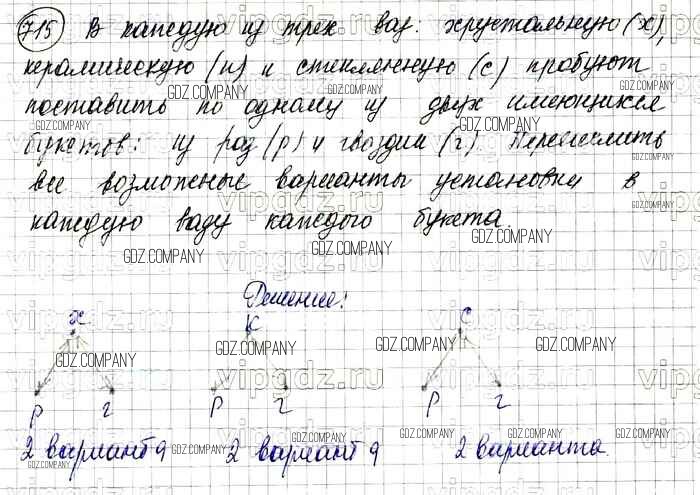 715 В каждую из трех ваз: хрустальную (х),
керамическую (к) и стеклянную (с) пробуют
поставить по одному из двух имеющихся
букетов: из роз (р) и гвоздик (г). Перечислить
все возможные варианты установки в
каждую вазу каждого букета.
Решение:
х к с
р г р г р г
2 варианта 2 варианта 2 варианта.
GDZ.COMPANY
vipgdz.ru